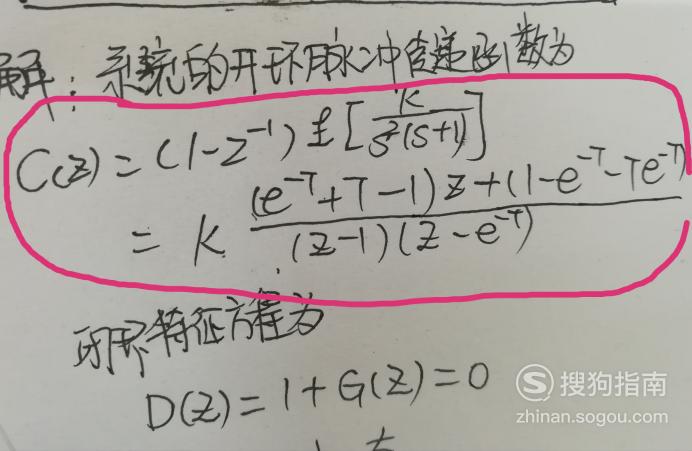 解：系统的开环脉冲传递函数为
C(z) = (1-z⁻¹) Z [ K / s²(s+1) ]
= K (e⁻ᵀ+T-1)z+(1-e⁻ᵀ-Te⁻ᵀ) / (z-1)(z-e⁻ᵀ)
闭环特征方程为
D(z) = 1+G(z) = 0
搜狗指南
zhinan.sogou.com